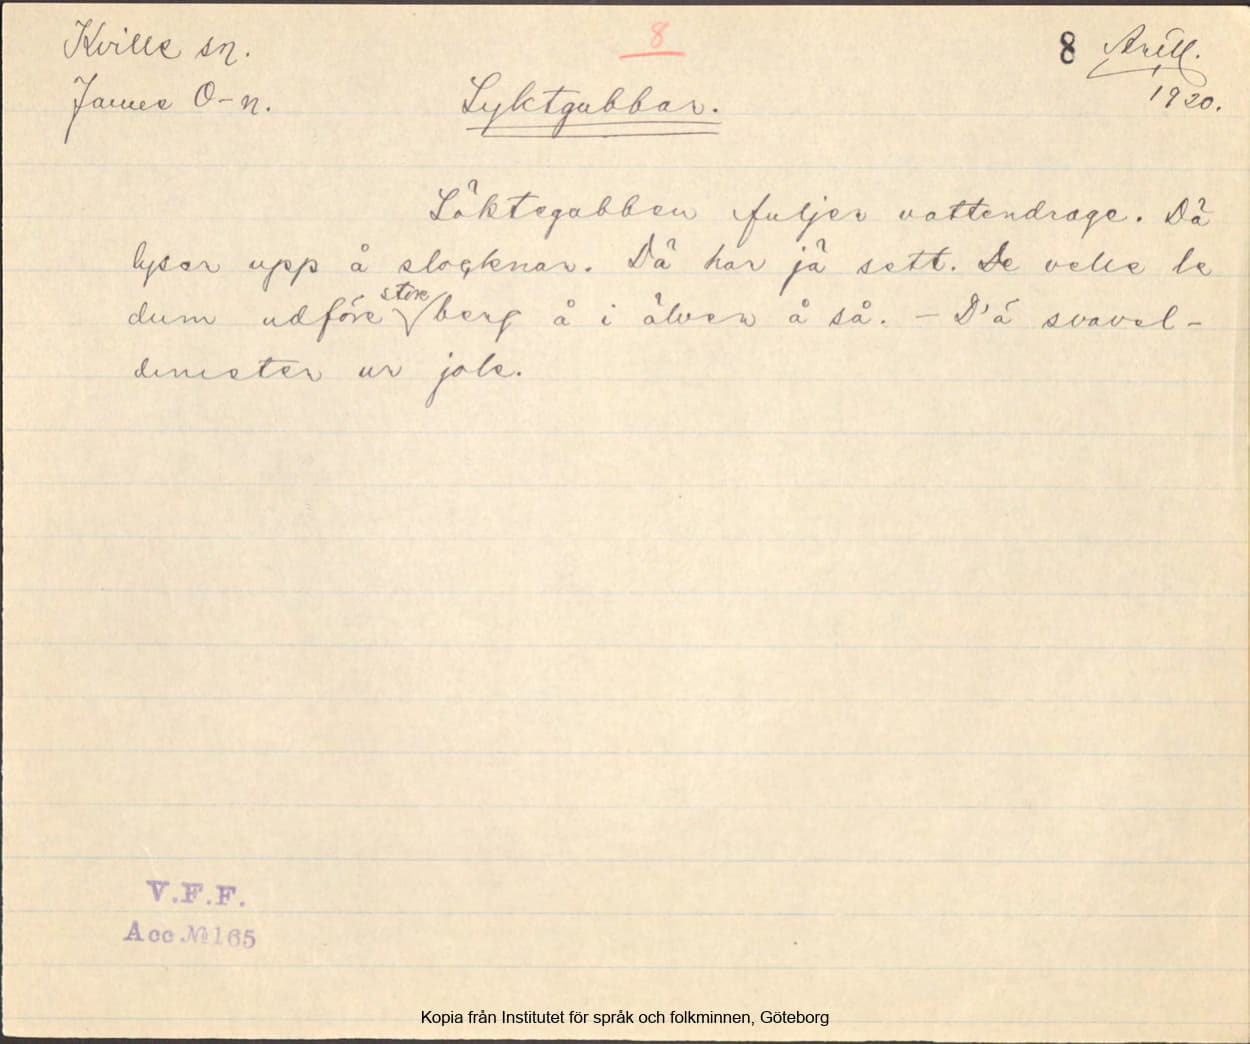 Kville sn.
8
8 Arill.
James O-n.
Lyktgubbar.
1920.
Löktegubben fuljer vattendrage. Dä
lyser upp å slocknar. Dä har jä sett. De velle le
dum udföre store berg å i älven å så. - D'ä svavel-
dunster ur jole.
V.F.F.
Acc.№165
Kopia från Institutet för språk och folkminnen, Göteborg